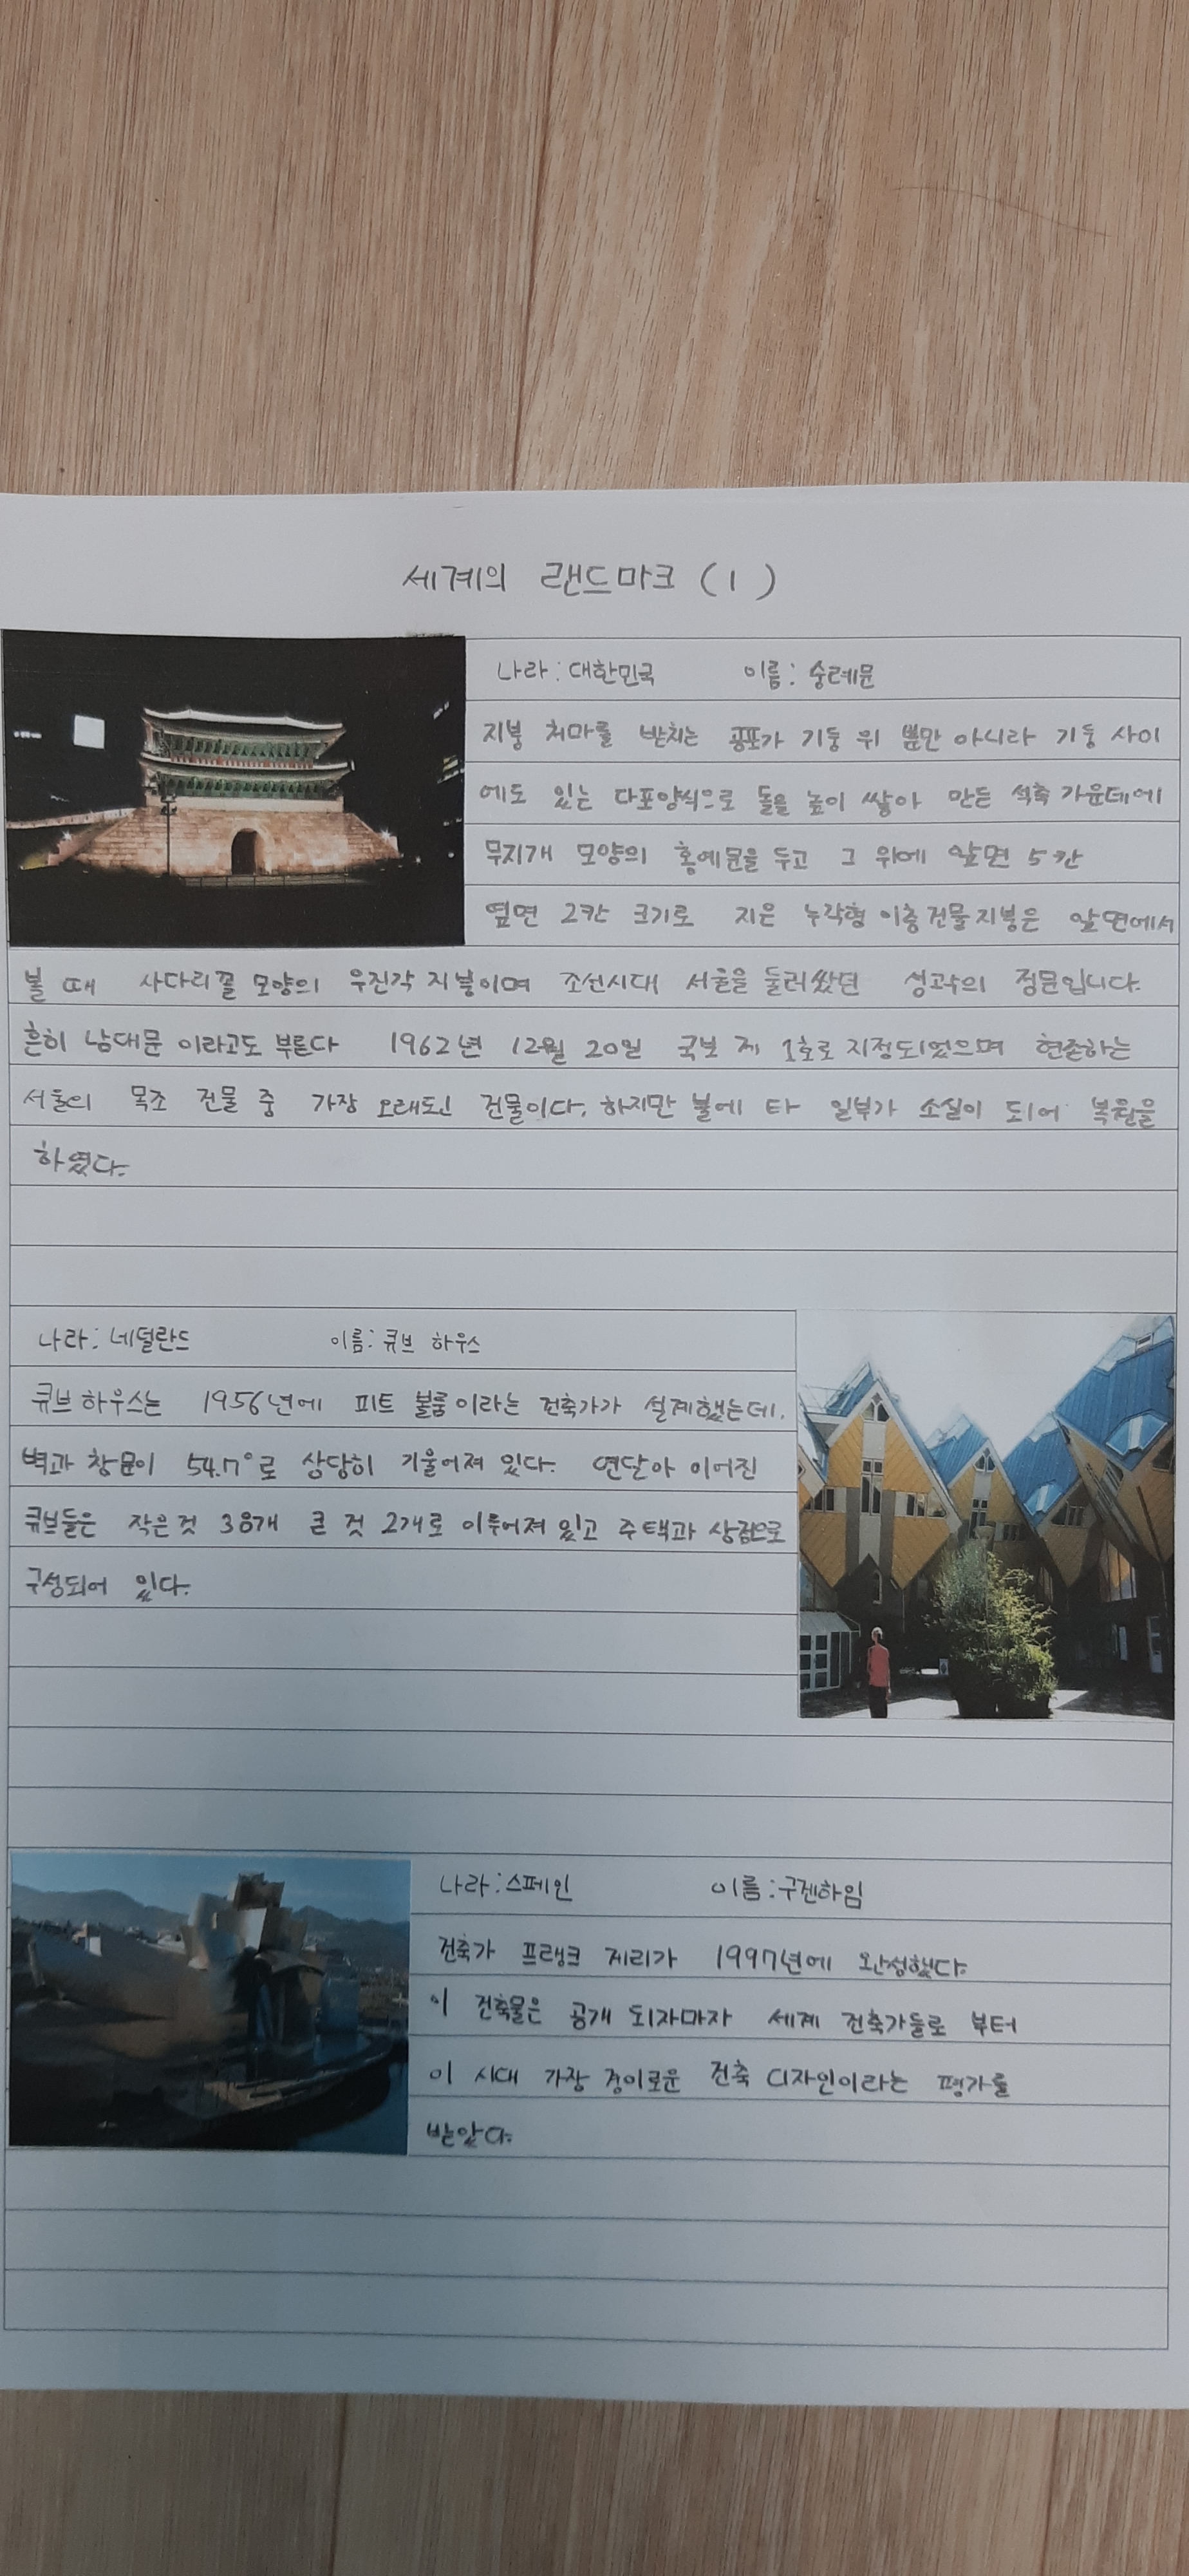 세계의 랜드마크 (1)
나라: 대한민국 이름: 숭례문
지붕 처마를 받치는 공포가 기둥 위 뿐만 아니라 기둥 사이
에도 있는 다포양식으로 돌을 높이 쌓아 만든 석축 가운데에
무지개 모양의 홍예문을 두고 그 위에 앞면 5칸
옆면 2칸 크기로 지은 누각형 이층건물지붕은 앞면에서
볼 때 사다리꼴 모양의 우진각 지붕이며 조선시대 서울을 둘러쌌던 성곽의 정문입니다.
흔히 남대문 이라고도 부른다 1962년 12월 20일 국보 제 1호로 지정되었으며 현존하는
서울의 목조 건물 중 가장 오래된 건물이다. 하지만 불에 타 일부가 소실이 되어 복원을
하였다.
나라: 네덜란드 이름: 큐브 하우스
큐브 하우스는 1956년에 피트 볼룸이라는 건축가가 설계했는데,
벽과 창문이 54.7°로 상당히 기울어져 있다. 연달아 이어진
큐브들은 작은것 38개 큰 것 2개로 이루어져 있고 주택과 상점으로
구성되어 있다.
나라: 스페인 이름: 구겐하임
건축가 프랭크 게리가 1997년에 완성했다.
이 건축물은 공개 되자마자 세계 건축가들로 부터
이 시대 가장 경이로운 건축 디자인이라는 평가를
받았다.